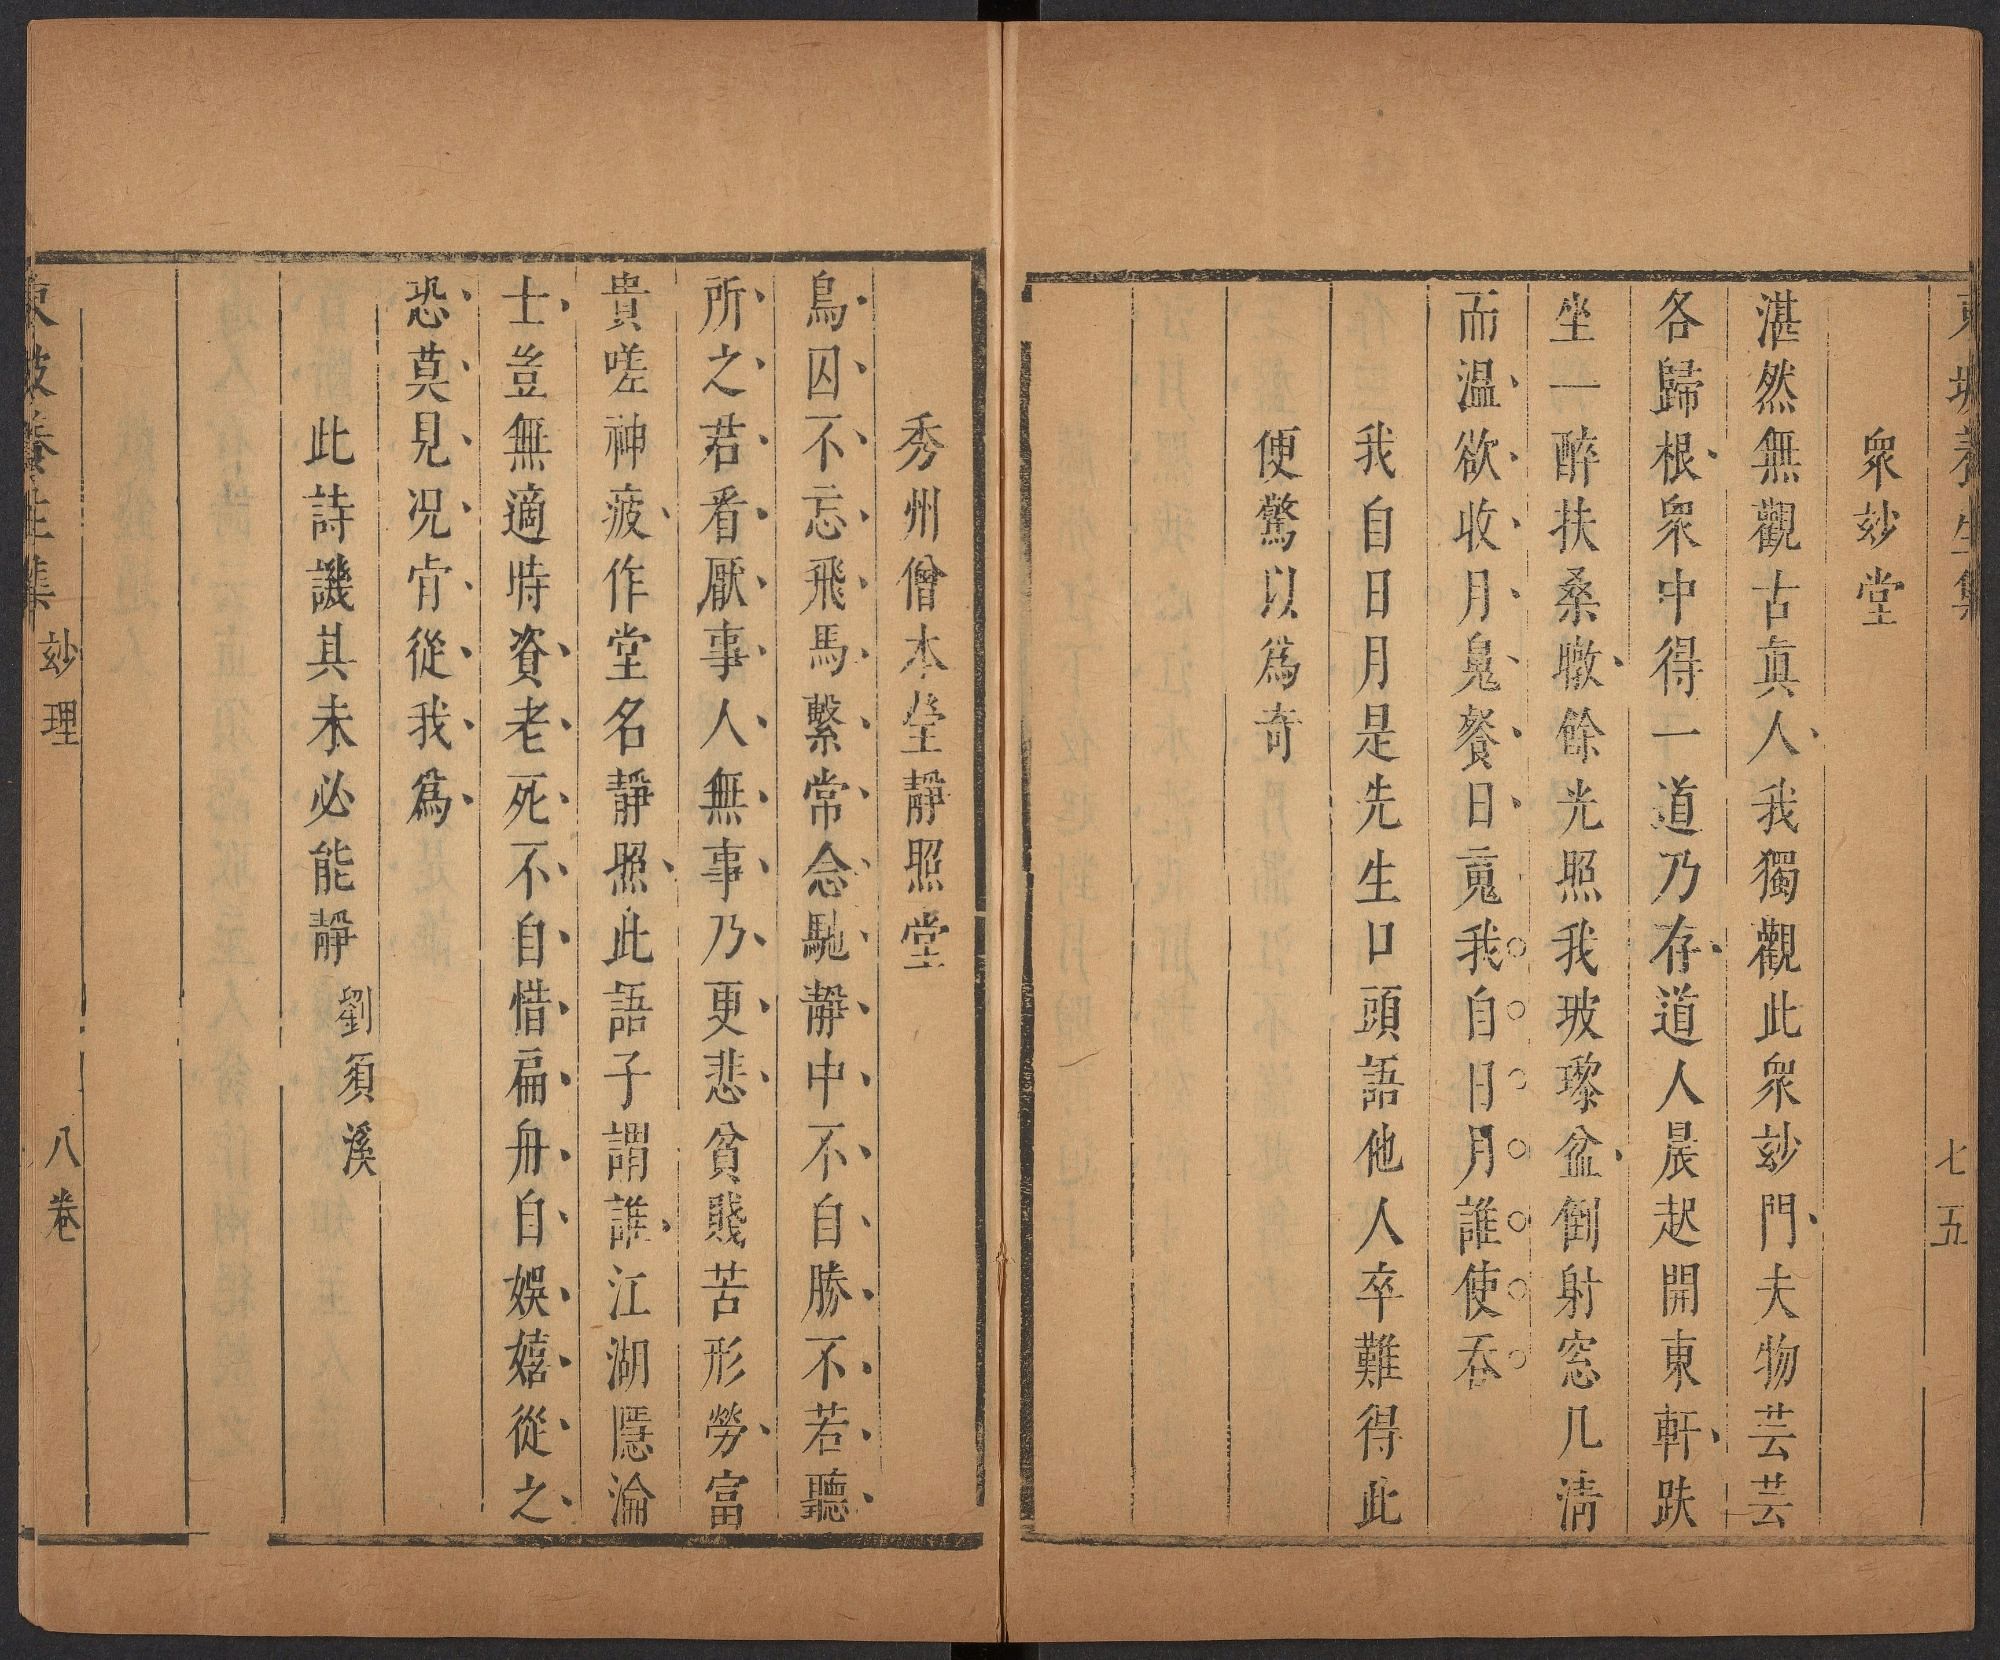 東坡養生集 七五
衆玅堂
湛然無觀古眞人我獨觀此衆玅門夫物芸芸
各歸根衆中得一道乃存道人晨起開東軒趺
坐一醉扶桑暾餘光照我玻瓈盆倒射窓几清
而温欲收月㒵餐日䰟我自日月誰使吞
我自日月是先生口頭語他人卒難得此
便驚以爲奇
秀州僧本瑩靜照堂
鳥囚不忘飛馬繫常念馳靜中不自勝不若聽
所之君看厭事人無事乃更悲貧賤苦形勞富
貴嗟神疲作堂名靜照此語子謂誰江湖隱淪
士豈無適時資老死不自惜扁舟自娛嬉從之
恐莫見况肯從我爲
此詩譏其未必能靜 劉須溪
東坡養生集 玅理 八卷